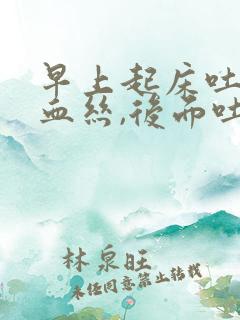 早上起床吐
血絲,後面吐
林泉旺
未经同意禁止转载